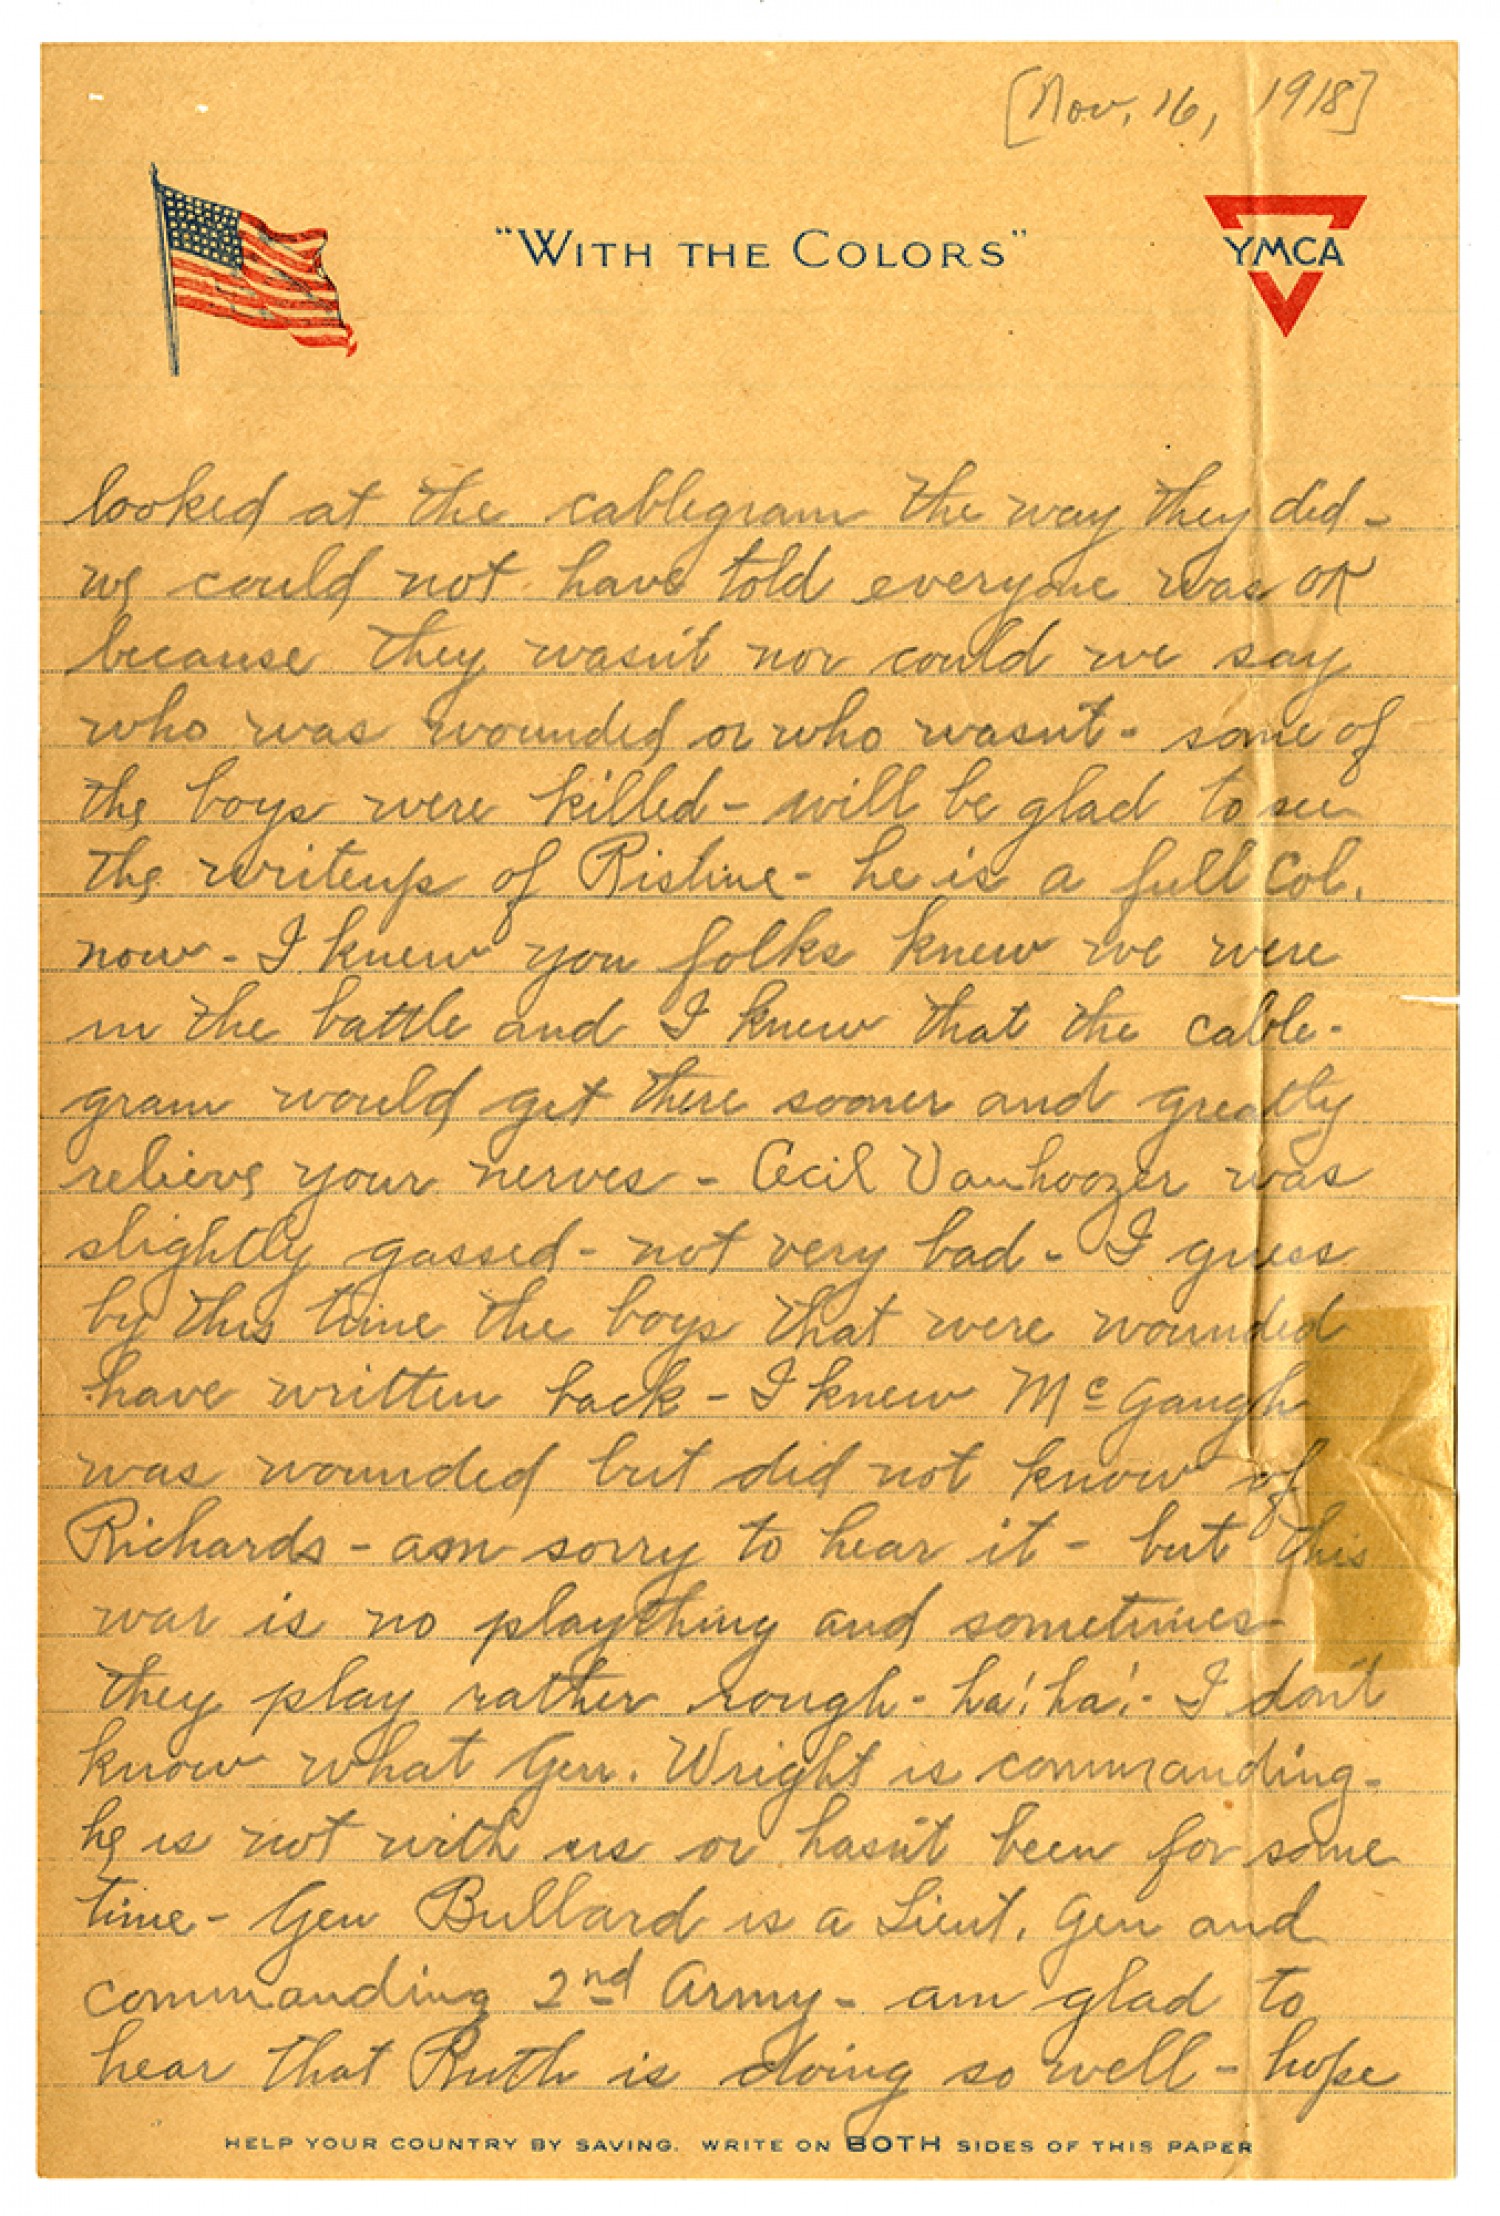 [Nov. 16, 1918]
"WITH THE COLORS"
YMCA
looked at the cablegram the way they did -
we could not have told everyone was OK
because they wasn't nor could we say
who was wounded or who wasn't - some of
the boys were killed - will be glad to see
the writeup of Ristine - he is a full Col.
now - I knew you folks knew we were
in the battle and I knew that the cable-
gram would get there sooner and greatly
relieve your nerves - Cecil Vanhoozer was
slightly gassed - not very bad - I guess
by this time the boys that were wounded
have written back - I knew McGaugh
was wounded but did not know of
Richards - am sorry to hear it - but this
war is no plaything and sometimes
they play rather rough - ha! ha! - I don't
know what Gen. Wright is commanding -
he is not with us or hasn't been for some
time - Gen Bullard is a Lieut. Gen and
commanding 2nd Army - am glad to
hear that Ruth is doing so well - hope
HELP YOUR COUNTRY BY SAVING. WRITE ON BOTH SIDES OF THIS PAPER